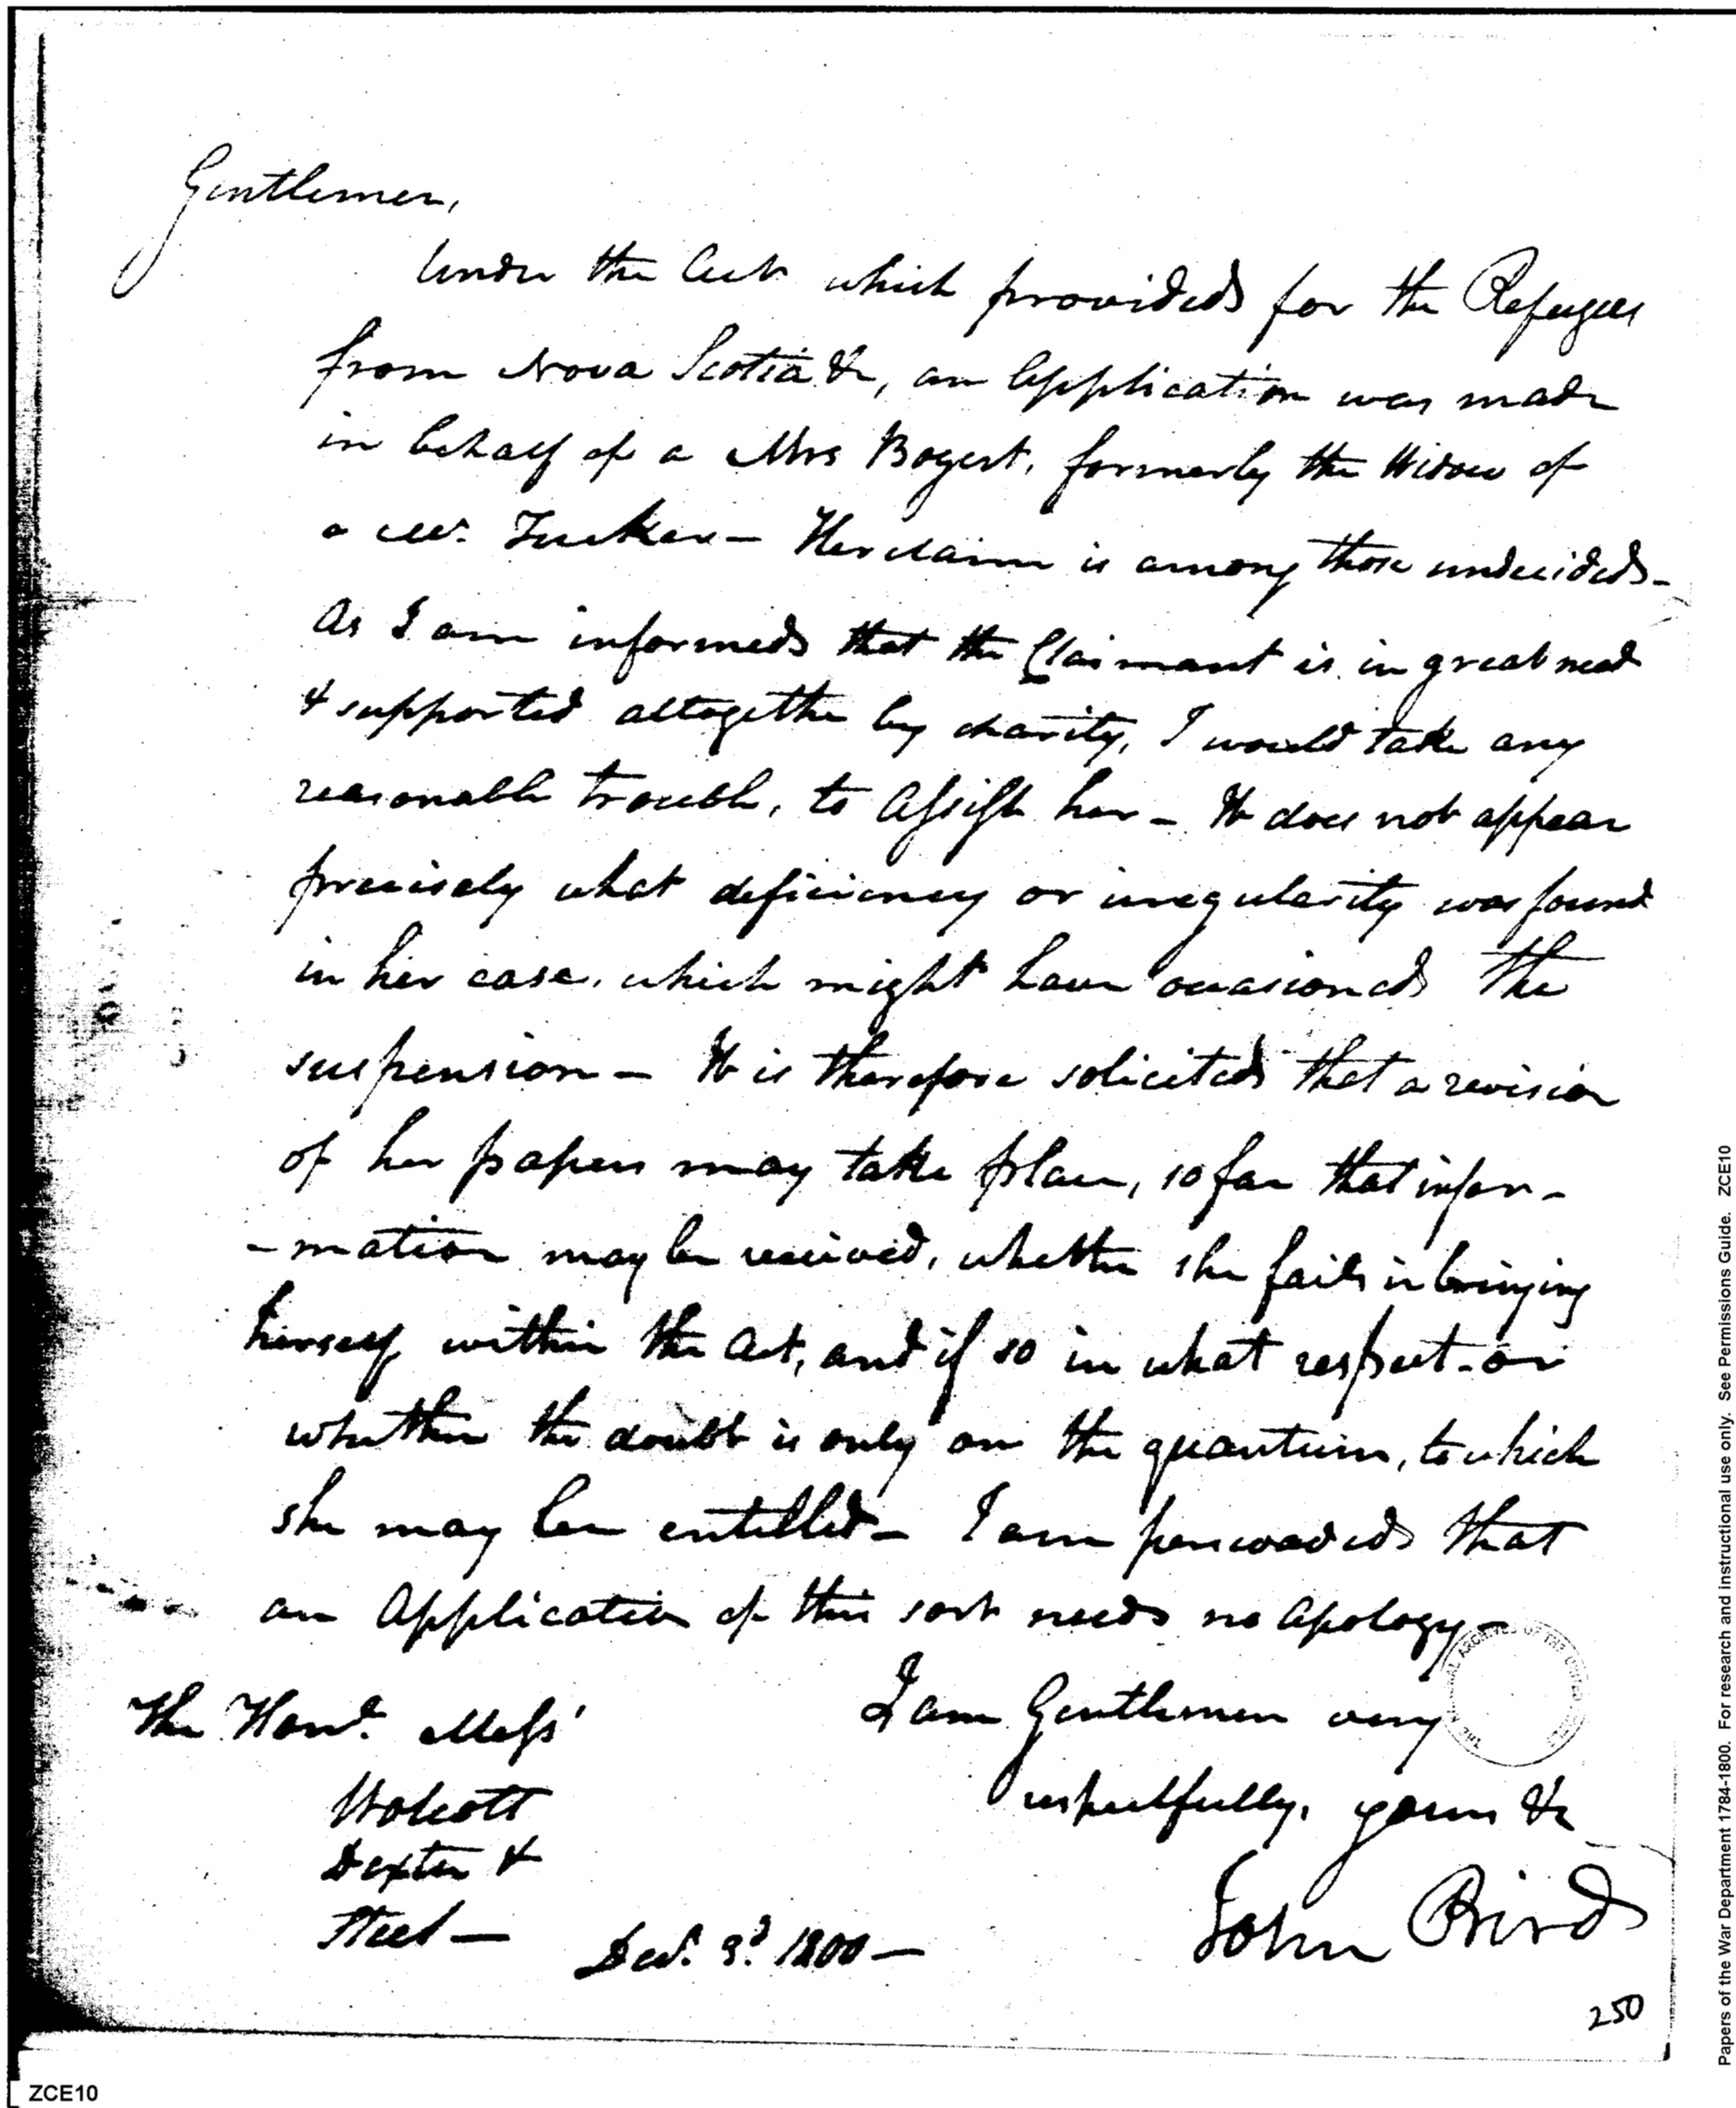 Gentlemen,
Under the Act which provided for the Refugees
from Nova Scotia &c, an Application was made
in behalf of a Mrs Bogert, formerly the Widow of
a Mr. Tucker - Her claim is among those undecided -
As I am informed that the Claimant is in great need
& supported altogether by charity, I would take any
reasonable trouble, to Assist her - It does not appear
precisely what deficiency or irregularity was found
in her case, which might have occasioned the
suspension - It is therefore solicited that a revision
of her papers may take place, so far that infor-
-mation may be received, whether she fails in bringing
herself within the Act, and if so in what respect - or
whether the doubt is only on the quantum, to which
she may be entitled - I am perswaded that
an Application of this sort needs no Apology -
I am Gentlemen very
respectfully, yours &c
John Bird
The Honle. Messrs
Wolcott
Dexter &
Steel -
Decr. 3d. 1800 -
250
ZCE10
Papers of the War Department 1784-1800. For research and instructional use only. See Permissions Guide. ZCE10